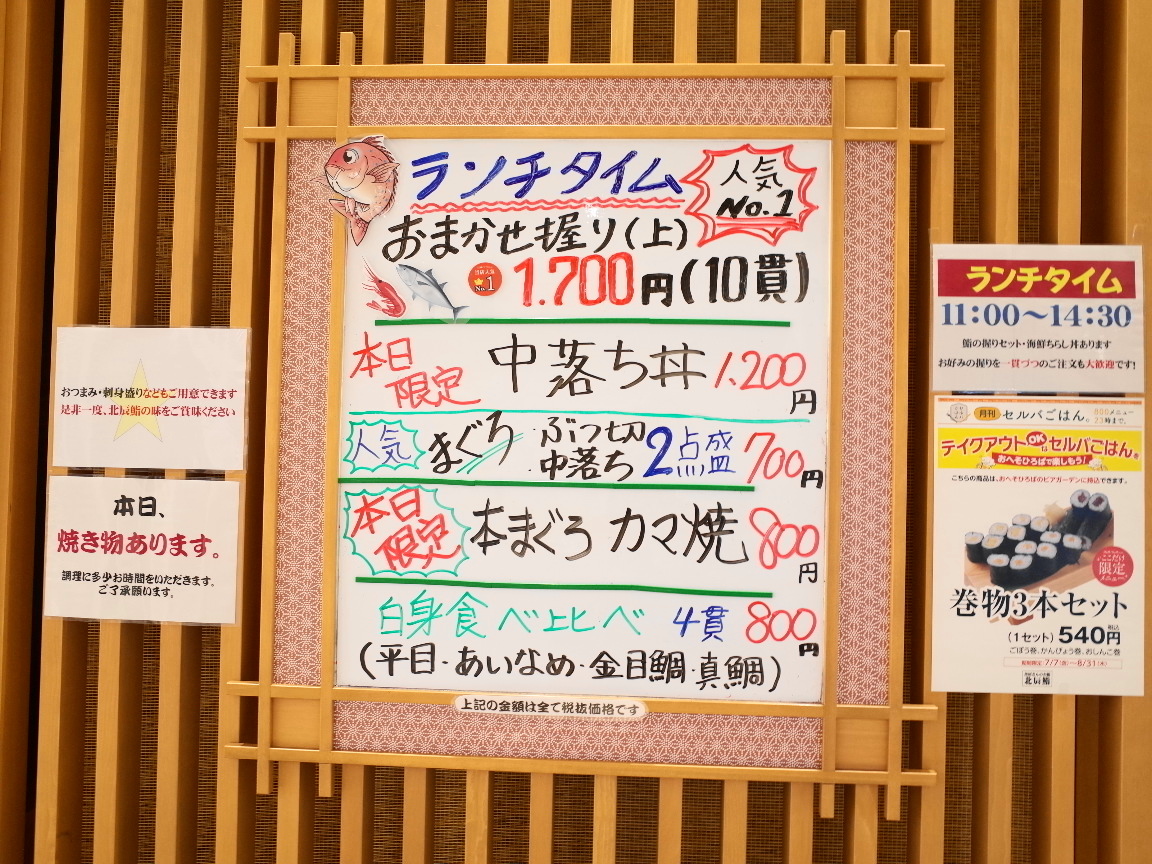 ランチタイム
人気
No.1
おまかせ握り(上)
1.700円(10貫)
本日
限定
中落ち丼 1.200
円
人気 まぐろ ぶつ切
中落ち 2点盛 700円
本日
限定
本まぐろ カマ焼 800
円
白身食べ比べ 4貫 800
円
(平目・あいなめ・金目鯛・真鯛)
上記の金額は全て税抜価格です
おつまみ・刺身盛りなどもご用意できます
是非一度、北辰鮨の味をご賞味ください
本日、
焼き物あります。
調理に多少お時間をいただきます。
ご了承願います。
ランチタイム
11:00～14:30
鮨の握りセット・海鮮ちらし丼あります
お好みの握りを一貫づつのご注文も大歓迎です!
月刊 セルバごはん。
テイクアウトOKなセルバごはん。
おへそひろばで楽しもう!
こちらの商品は、おへそひろばのビアガーデンに持込できます。
ここだけ
限定
メニュー!
巻物3本セット
(1セット) 540円
税込
ごぼう巻、かんぴょう巻、おしんこ巻
7/7(金)～8/31(木)
北辰鮨